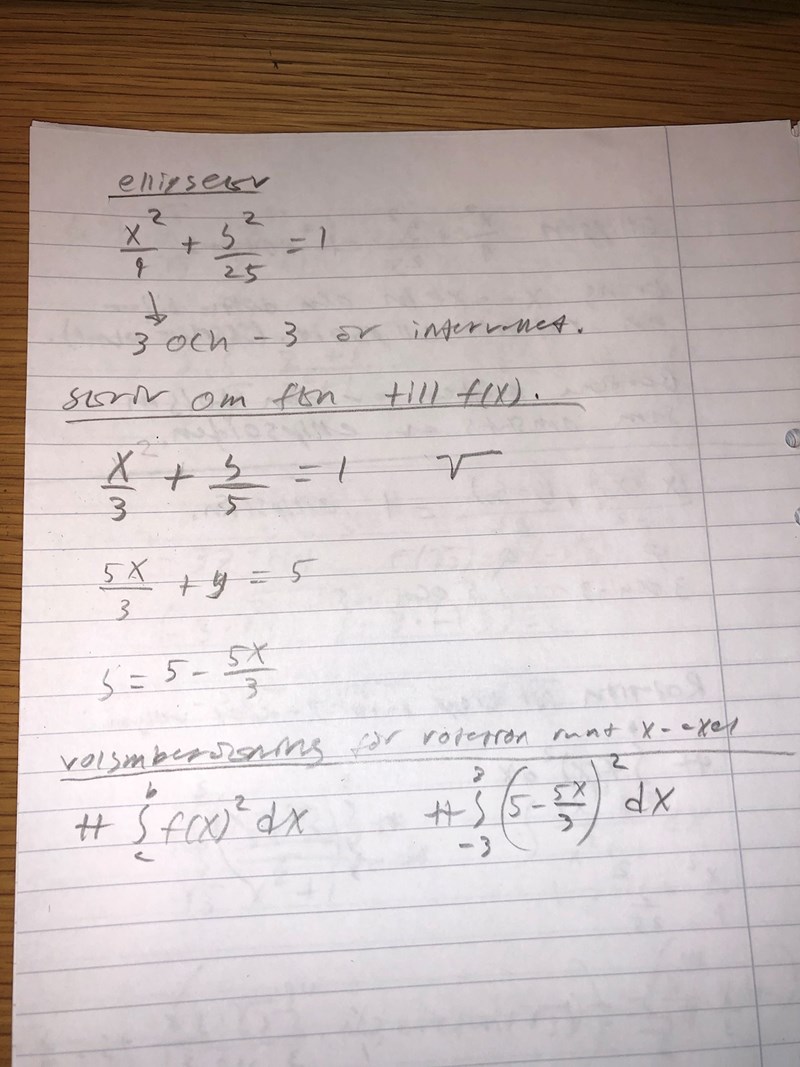 ellipser
x²/9 + y²/25 = 1
3 och -3 är intervallet.
skriv om fkn till f(x).
x/3 + y/5 = 1 √
5x/3 + y = 5
y = 5 - 5x/3
volymberäkning för rotation runt x-axel
π ∫ f(x)² dx π ∫₋₃³ (5 - 5x/3)² dx